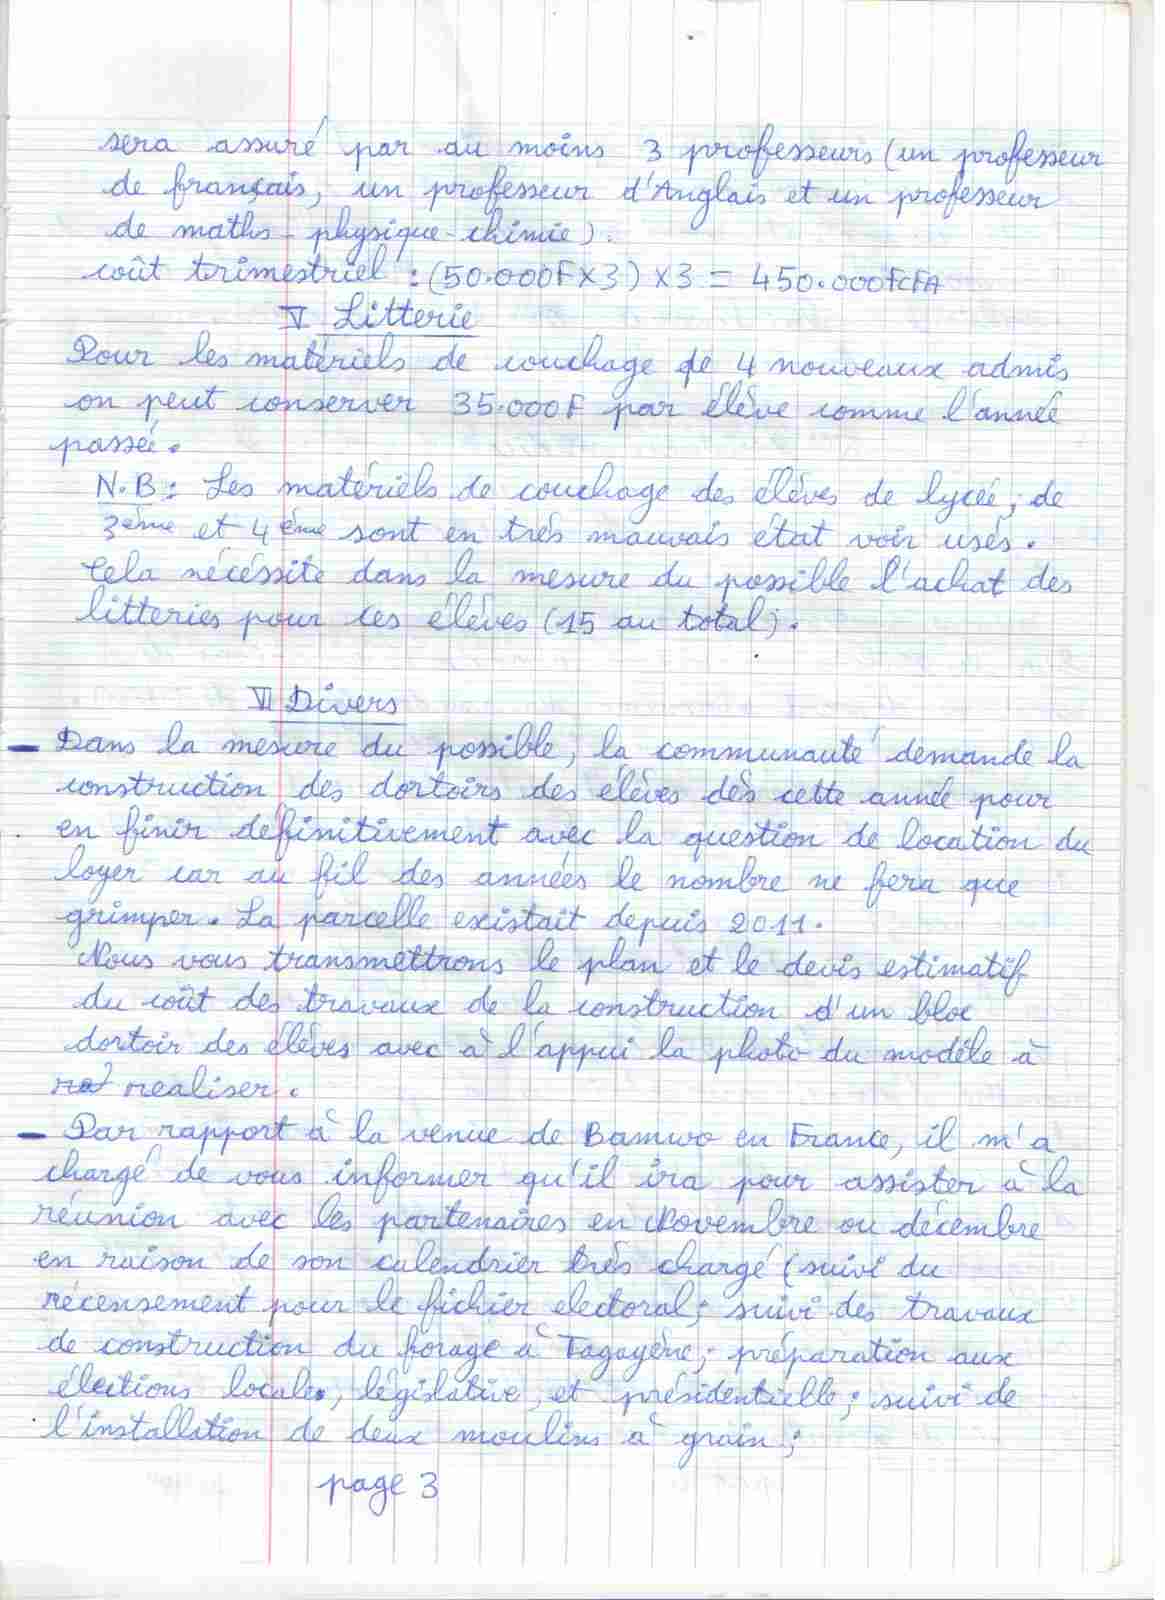 sera assuré par au moins 3 professeurs (un professeur
de français, un professeur d'Anglais et un professeur
de maths-physique-chimie).
coût trimestriel : (50.000F×3) ×3 = 450.000FCFA
V Litterie
Pour les matériels de couchage de 4 nouveaux admis
on peut conserver 35.000F par élève comme l'année
passée.
N.B: Les matériels de couchage des élèves de lycée, de
3ème et 4ème sont en très mauvais état voir usés.
Cela nécéssite dans la mesure du possible l'achat des
litteries pour ces élèves (15 au total).
VI Divers
- Dans la mesure du possible, la communauté demande la
construction des dortoirs des élèves dès cette année pour
en finir définitivement avec la question de location du
loyer car au fil des années le nombre ne fera que
grimper. La parcelle existait depuis 2011.
Nous vous transmettrons le plan et le devis estimatif
du coût des travaux de la construction d'un bloc
dortoir des élèves avec à l'appui la photo du modèle à
realiser.
- Par rapport à la venue de Bamwo en France, il m'a
chargé de vous informer qu'il ira pour assister à la
réunion avec les partenaires en Novembre ou décembre
en raison de son calendrier très chargé (suivi du
récensement pour le fichier electoral; suivi des travaux
de construction du forage à Tagayène; préparation aux
élections locales, législative, et présidentielle; suivi de
l'installition de deux moulins à grain;
page 3